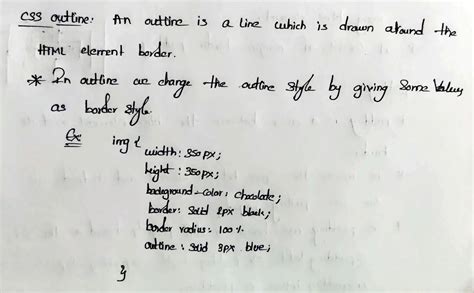 CSS outline: An outline is a line which is drawn around the
HTML element border.
* In outline we change the outline style by giving Some Values
as border style.
Ex img {
width: 350px;
height: 350px;
background-color: chocolate;
border: Solid 2px black;
border radius: 100%
outline: Solid 3px blue;
}